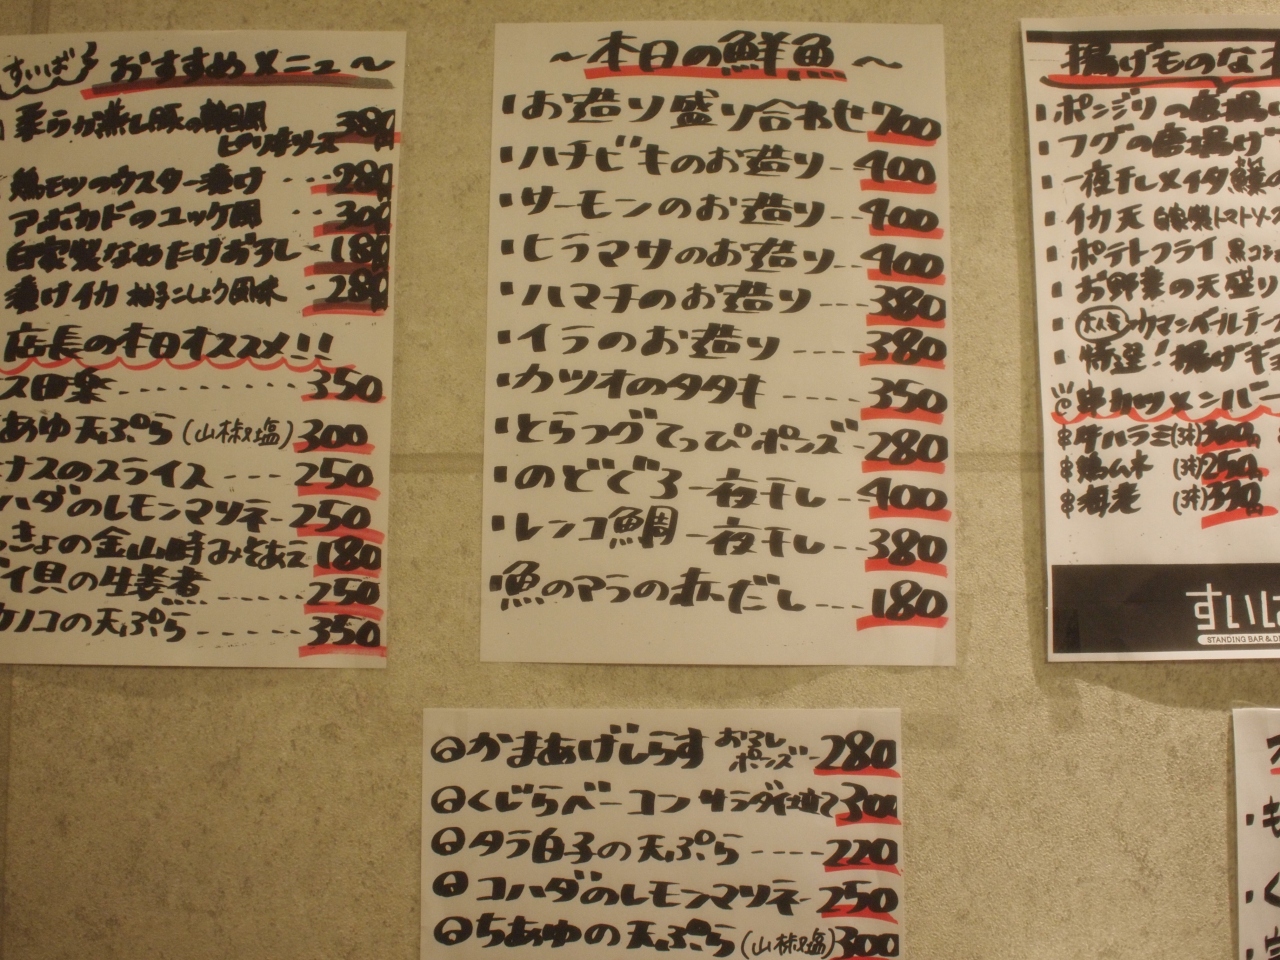 すいば
おすすめメニュー〜
柔らか蒸し豚の
ピリ辛ソース 380
鶏モツのウスター漬け ---280
アボカドのユッケ風 -- 300
自家製なめたけおろし - 180
漬けイカ 柚子こしょう風味 - 280
店長の本日オススメ!!
ス田楽 -------- 350
あゆ天ぷら (山椒塩) 300
ナスのスライス ---- 250
ハダのレモンマリネ- 250
きょの金山時みそあえ 180
イ貝の生姜煮 ------- 250
ケノコの天ぷら ------ 350
〜本日の鮮魚〜
・お造り盛り合わせ 700
・ハチビキのお造り -- 400
・サーモンのお造り -- 400
・ヒラマサのお造り -- 400
・ハマチのお造り --- 380
・イラのお造り ---- 380
・カツオのタタキ ---- 350
・とらフグてっぴポンズ-280
・のどぐろ一夜干し --400
・レンコ鯛一夜干し --380
・魚のアラの赤だし --- 180
揚げものな
・ポンジリの唐揚
・フグの唐揚げ
・一夜干しメイタ鰈の
・イカ天 自家製トマトソース
・ポテトフライ 黒コショ
・お野菜の天盛り
・大人気 ウマンイールチー
・特選!揚げギョ
串カツメンバー
牛ハラミ(3本)300円
鶏ムネ (3本)250円
海老 (3本)330円
すいば
STANDING BAR & DI
かまあげしらす おろしポンズ-280
くじらベーコン サラダ仕立て300
タラ白子の天ぷら ---- 220
コハダのレモンマリネ- 250
ちあゆの天ぷら (山椒塩) 300